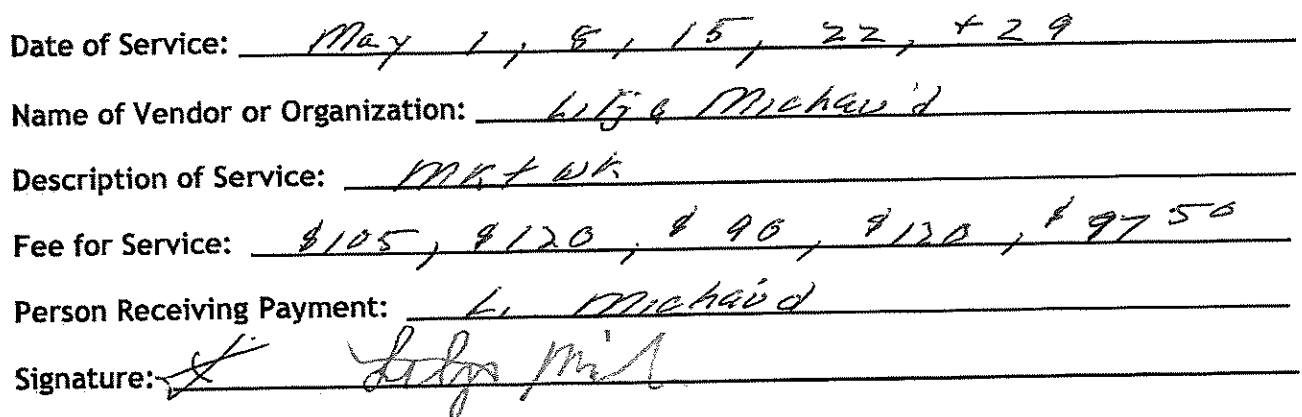 Date of Service: May 1, 8, 15, 22, + 29
Name of Vendor or Organization: Lilja Michaud
Description of Service: Mkt wk
Fee for Service: $105, $120, $90, $120, $97 50
Person Receiving Payment: L. Michaud
Signature: X